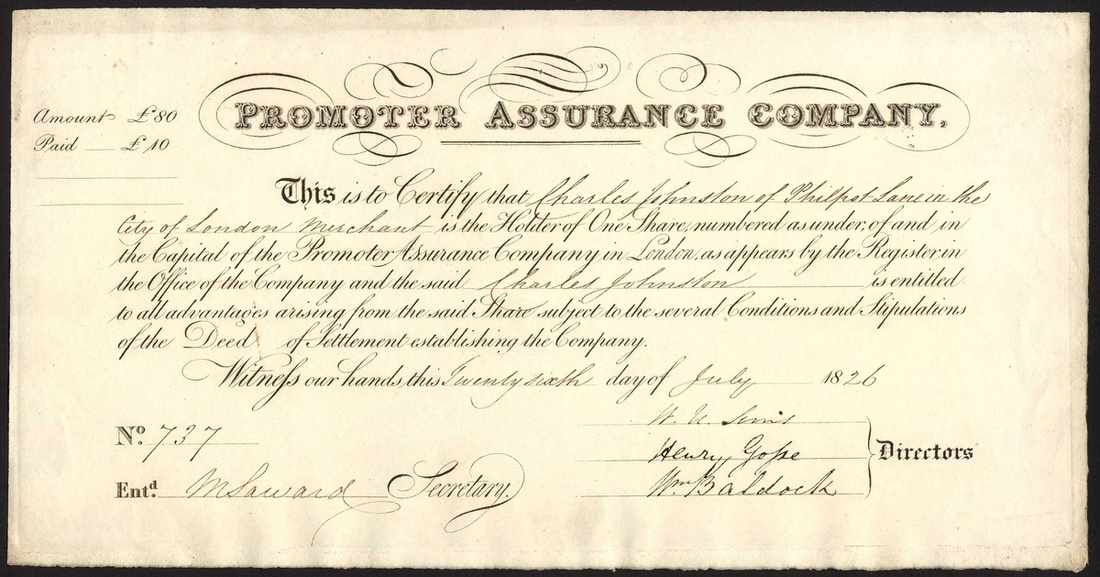 PROMOTER ASSURANCE COMPANY.
Amount £80
Paid £10
This is to Certify that Charles Johnston of Philpot Lane in the
City of London Merchant is the Holder of One Share, numbered as under, of and in
the Capital of the Promoter Assurance Company in London, as appears by the Register in
the Office of the Company and the said Charles Johnston is entitled
to all advantages arising from the said Share subject to the several Conditions and Stipulations
of the Deed of Settlement establishing the Company.
Witness our hands, this Twenty sixth day of July 1826
No. 737
Entd. M Saward Secretary.
Henry Goſse
Wm. Baldock
Directors